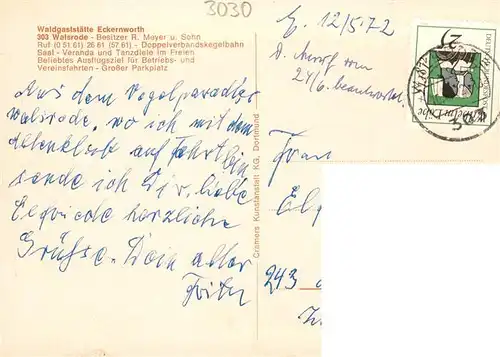 3030
Waldgaststätte Eckernworth
303 Walsrode - Besitzer R. Meyer u. Sohn
Ruf (0 51 61) 26 61 (57 61) - Doppelverbandskegelbahn
Saal - Veranda und Tanzdiele im Freien
Beliebtes Ausflugsziel für Betriebs- und
Vereinsfahrten - Großer Parkplatz
Aus dem Vogelparadies
Walsrode, wo ich mit dem
Altenklub auf Fahrt bin
sende ich Dir, liebe
herzliche
Grüße. Dein alter
Fritz
Cramers Kunstanstalt KG, Dortmund
E. 12/5.72
24/6. beantwortet.
Frau
243